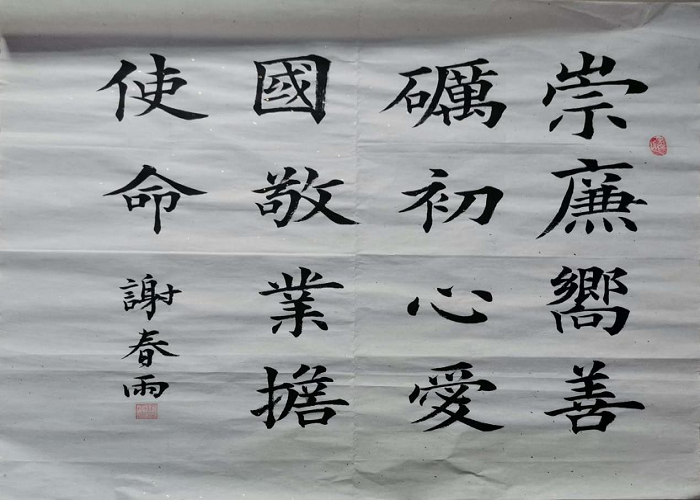 崇廉嚮善
礪初心愛
國敬業擔
使命
謝春雨